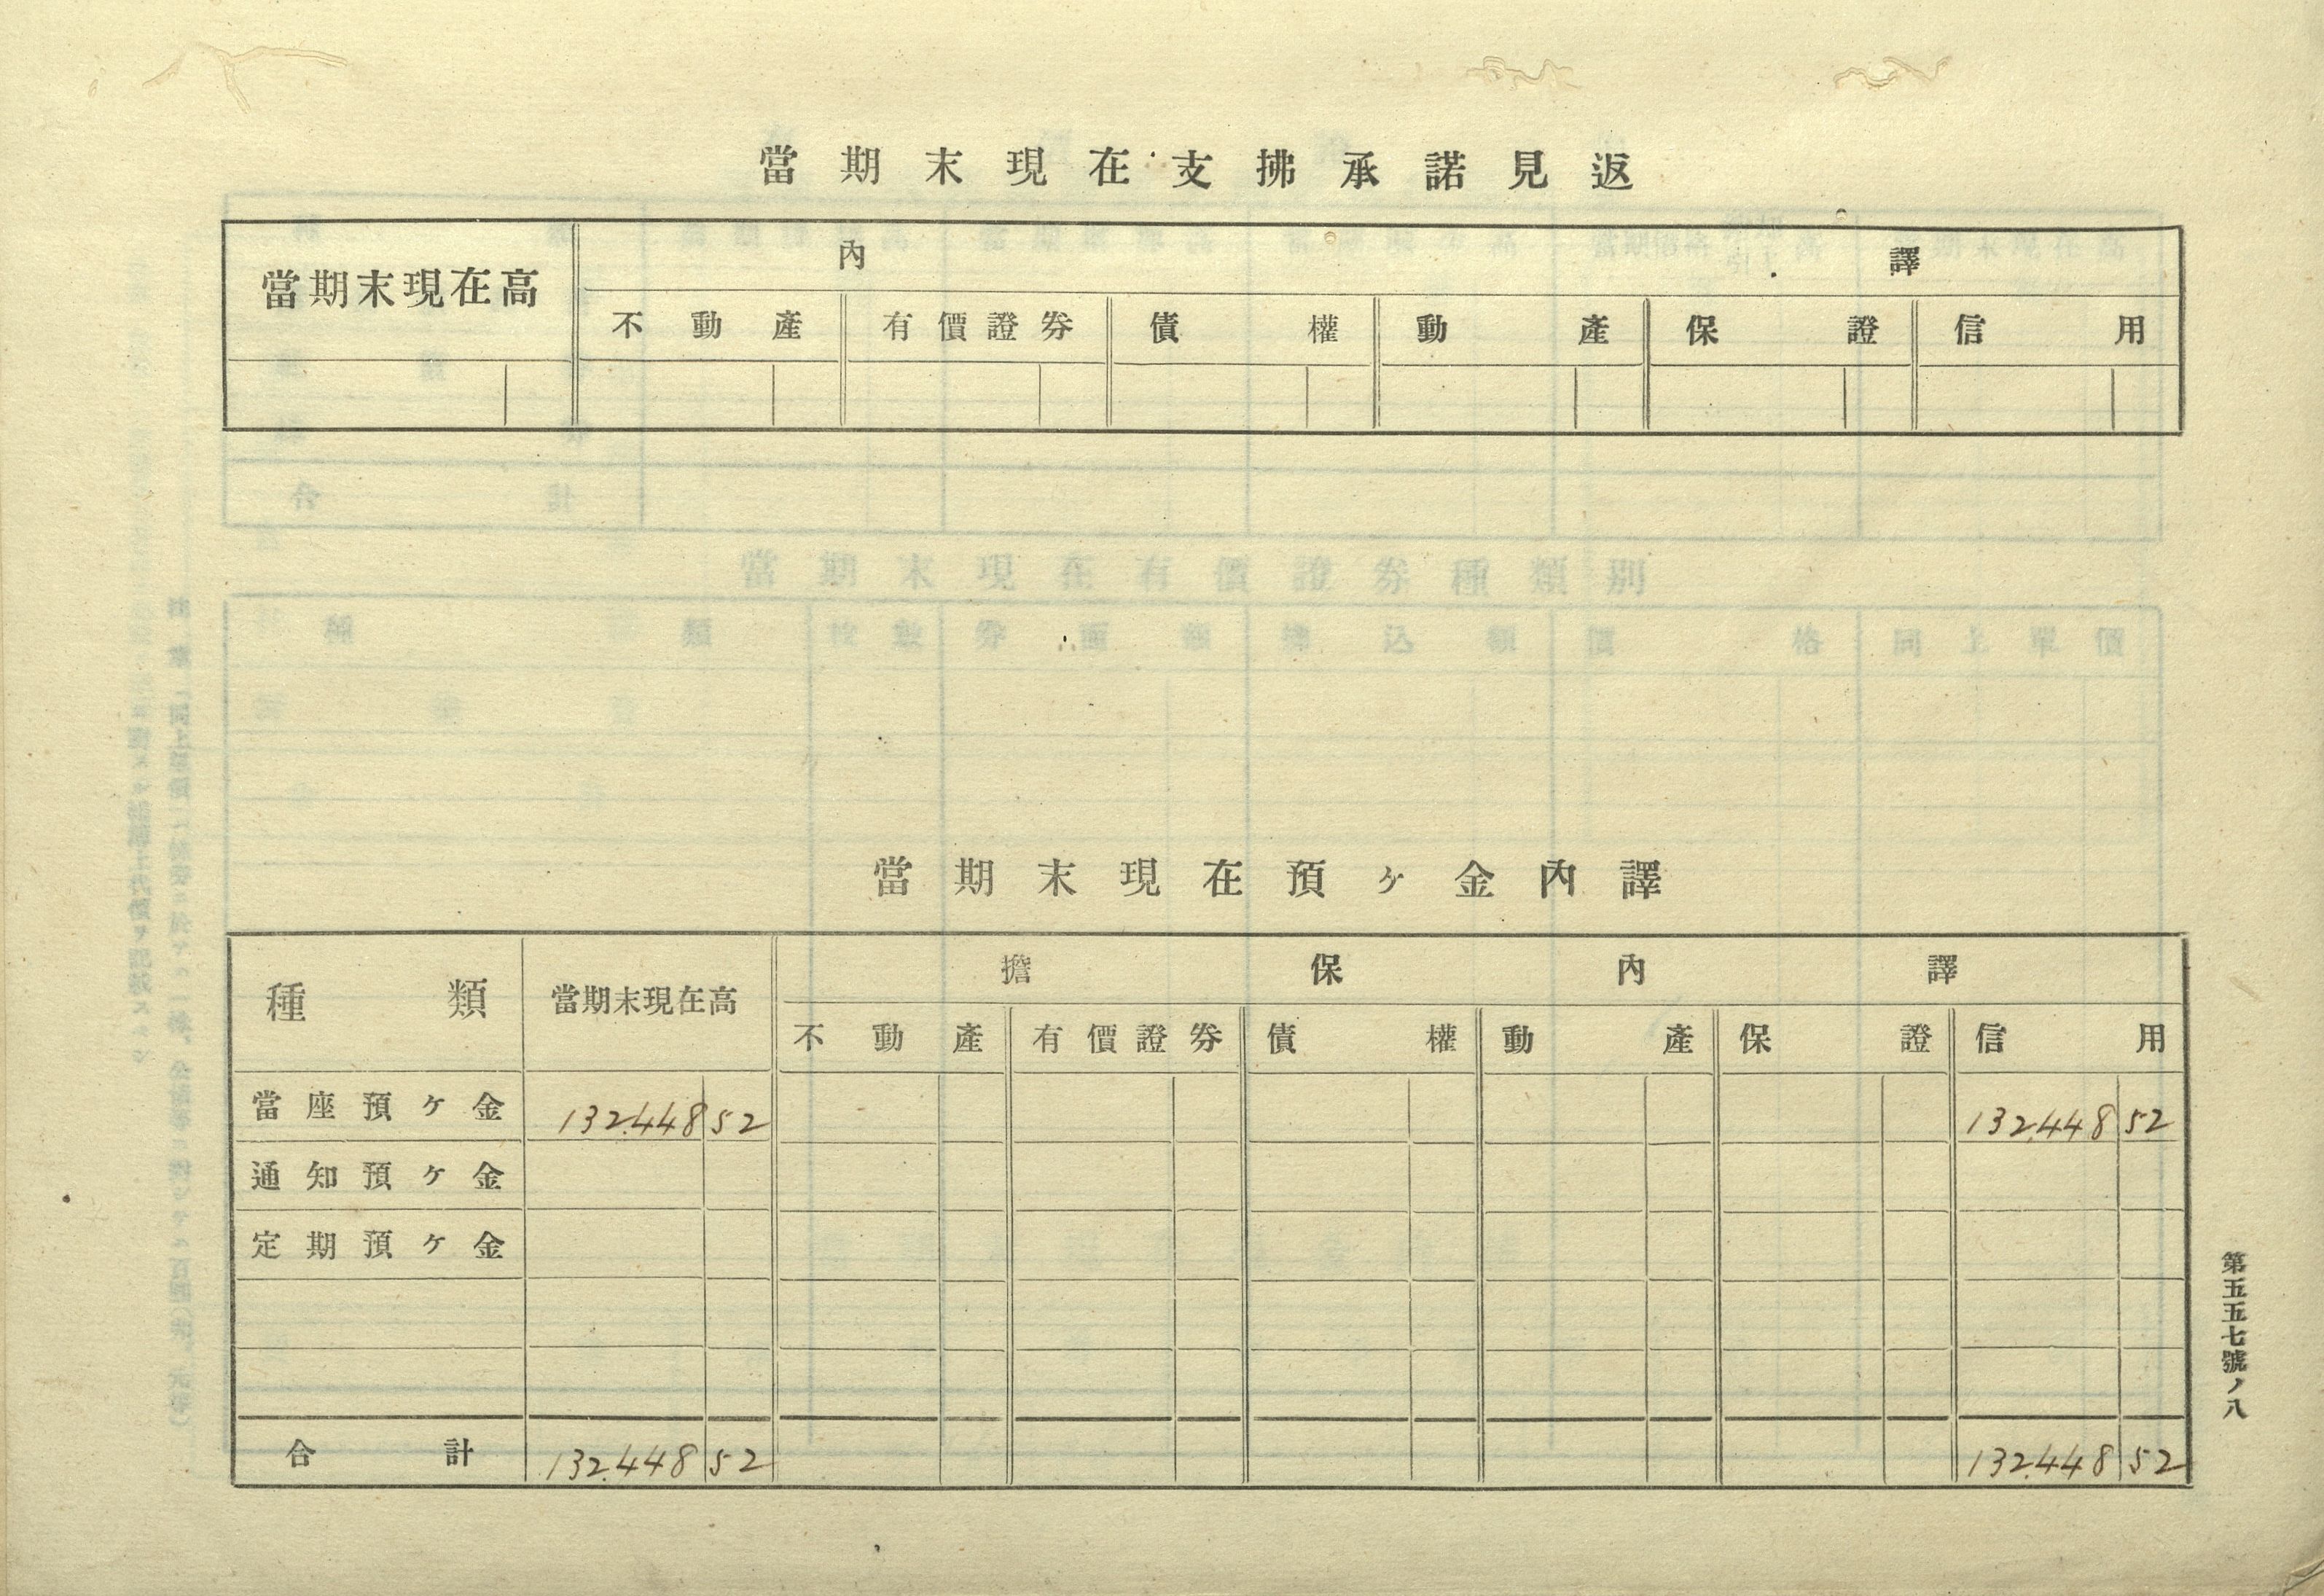 當期末現在支拂承諾見返
當期末現在高 內譯
不動產 有價證券 債權 動產 保證 信用
當期末現在有價證券種類別
當期末現在預ヶ金內譯
種類 當期末現在高 擔保內譯
不動產 有價證券 債權 動產 保證 信用
當座預ヶ金 132.448 52 132.448 52
通知預ヶ金
定期預ヶ金
合計 132.448 52 132.448 52
第五五七號ノ八